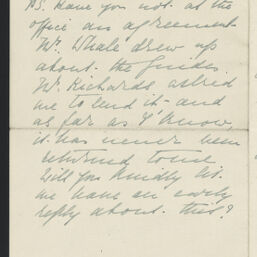 P.S. Have you not at the
office an agreement
Mr. Whale drew up
about the Guides.
Mr. Richards asked
me to lend it - and
as far as I know,
it has never been
returned to me.
Will you kindly let
me have an early
reply about this?